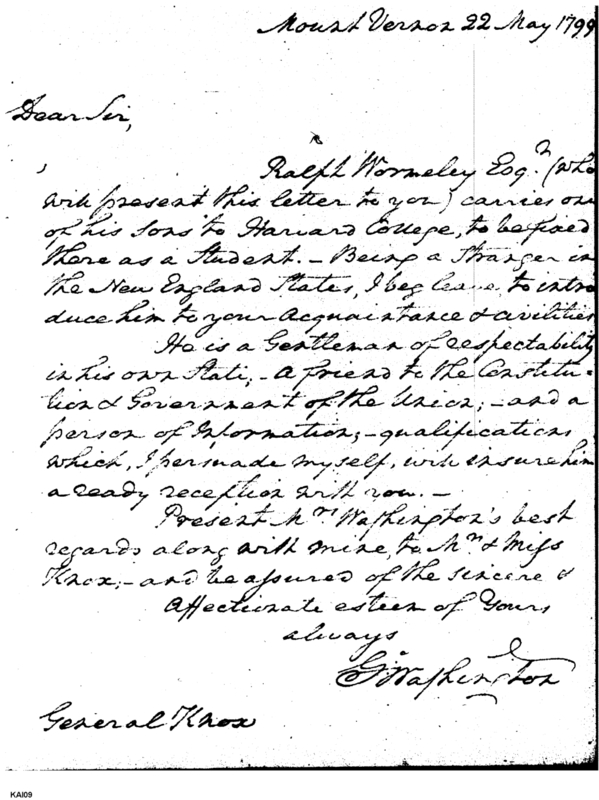 Mount Vernon 22 May 1799
Dear Sir,
Ralph Wormeley Esqr. (who
will present this letter to you) carries one
of his Sons to Harvard College, to be fixed
there as a Student. – Being a stranger in
the New England States, I beg leave, to intro
duce him to your Acquaintance & civilities
He is a Gentleman of respectability
in his own State; – a friend to the Constitu-
tion & Government of the Union; – and a
person of Information; – qualifications
which, I persuade myself, will insure him
a ready reception with you. –
Present Mrs Washington's best
regards along with mine, to Mrs & Miss
Knox; – and be assured of the sincere &
Affectionate esteem of Yours
always
Go Washington
General Knox
KAI09